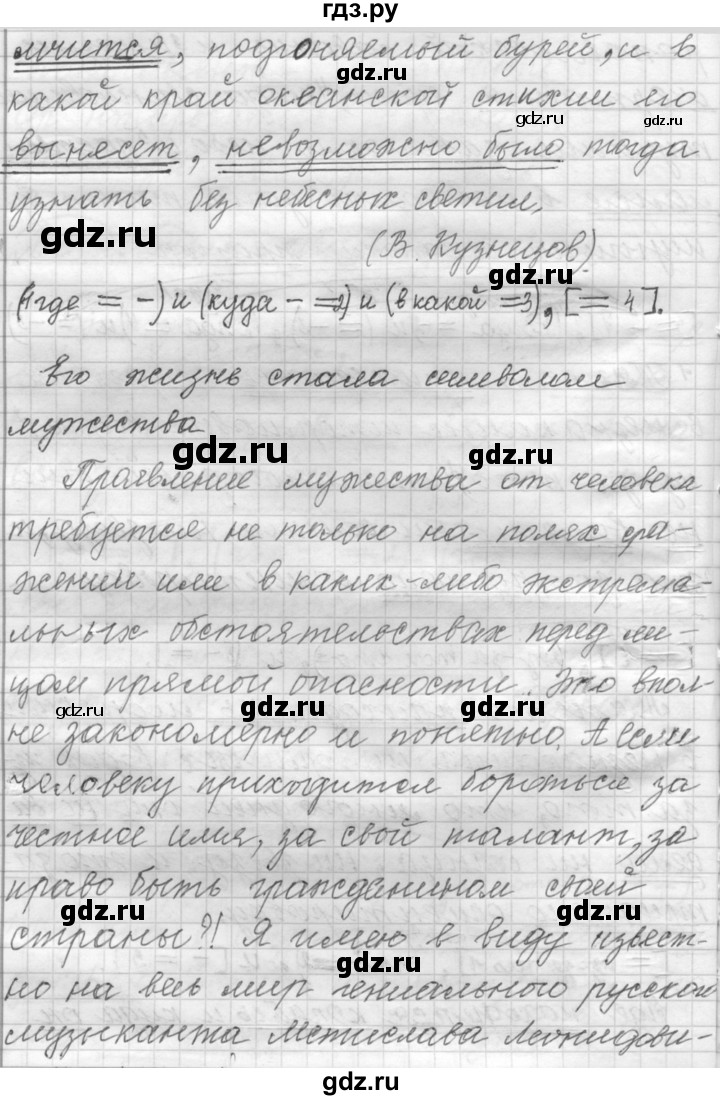 гдз.ру
мчится, подгоняемый бурей, и в
gdz.ru
какой край океанской стихии его
gdz.ru
вынесет, невозможно было тогда
узнать без небесных светил.
gdz.ru
(В. Кузнецов).
gdz.ru
(1где = -) и (куда - =2) и (в какой =3), [= 4].
Его жизнь стала символом
мужества
gdz.ru
gdz.ru
Проявление мужества от человека
требуется не только на полях сра-
жении или в каких-либо экстрема-
льных обстоятельствах перед ли-
цом прямой опасности. Это впол-
gdz.ru
gdz.ru
gdz.ru
не закономерно и понятно. А если
человеку приходится бороться за
честное имя, за свой талант, за
право быть гражданином своей
gdz.ru
gdz.ru
страны?! Я имею в виду извест-
но на весь мир гениального русского
gdz.ru
музыканта Мстислава Леонидови-
gdz.ru